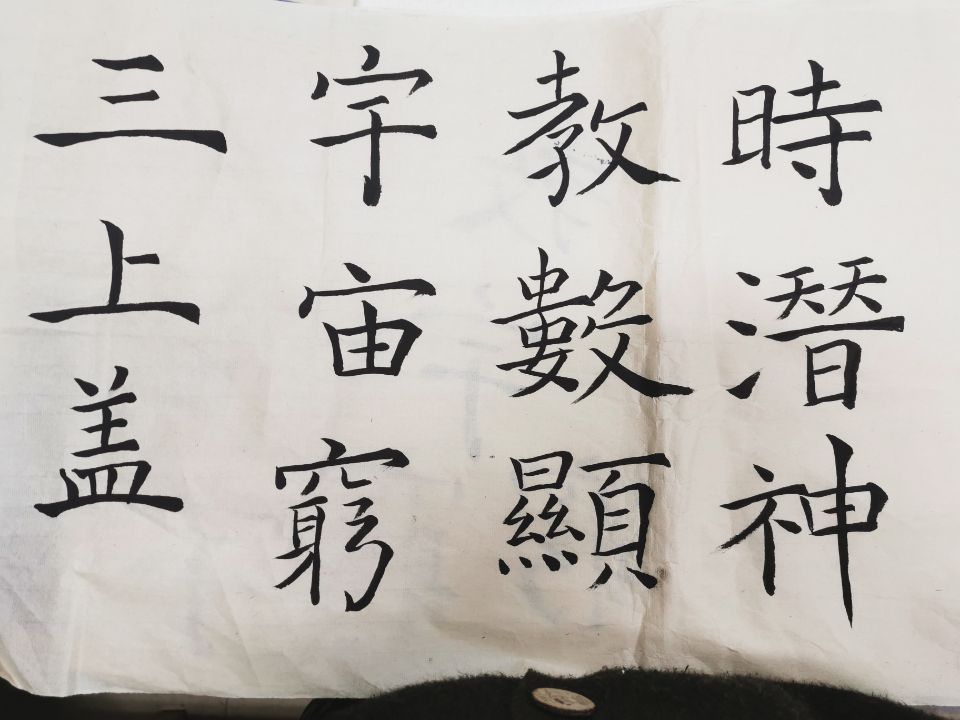 時潛神
教數顯
宇宙窮
三上盖